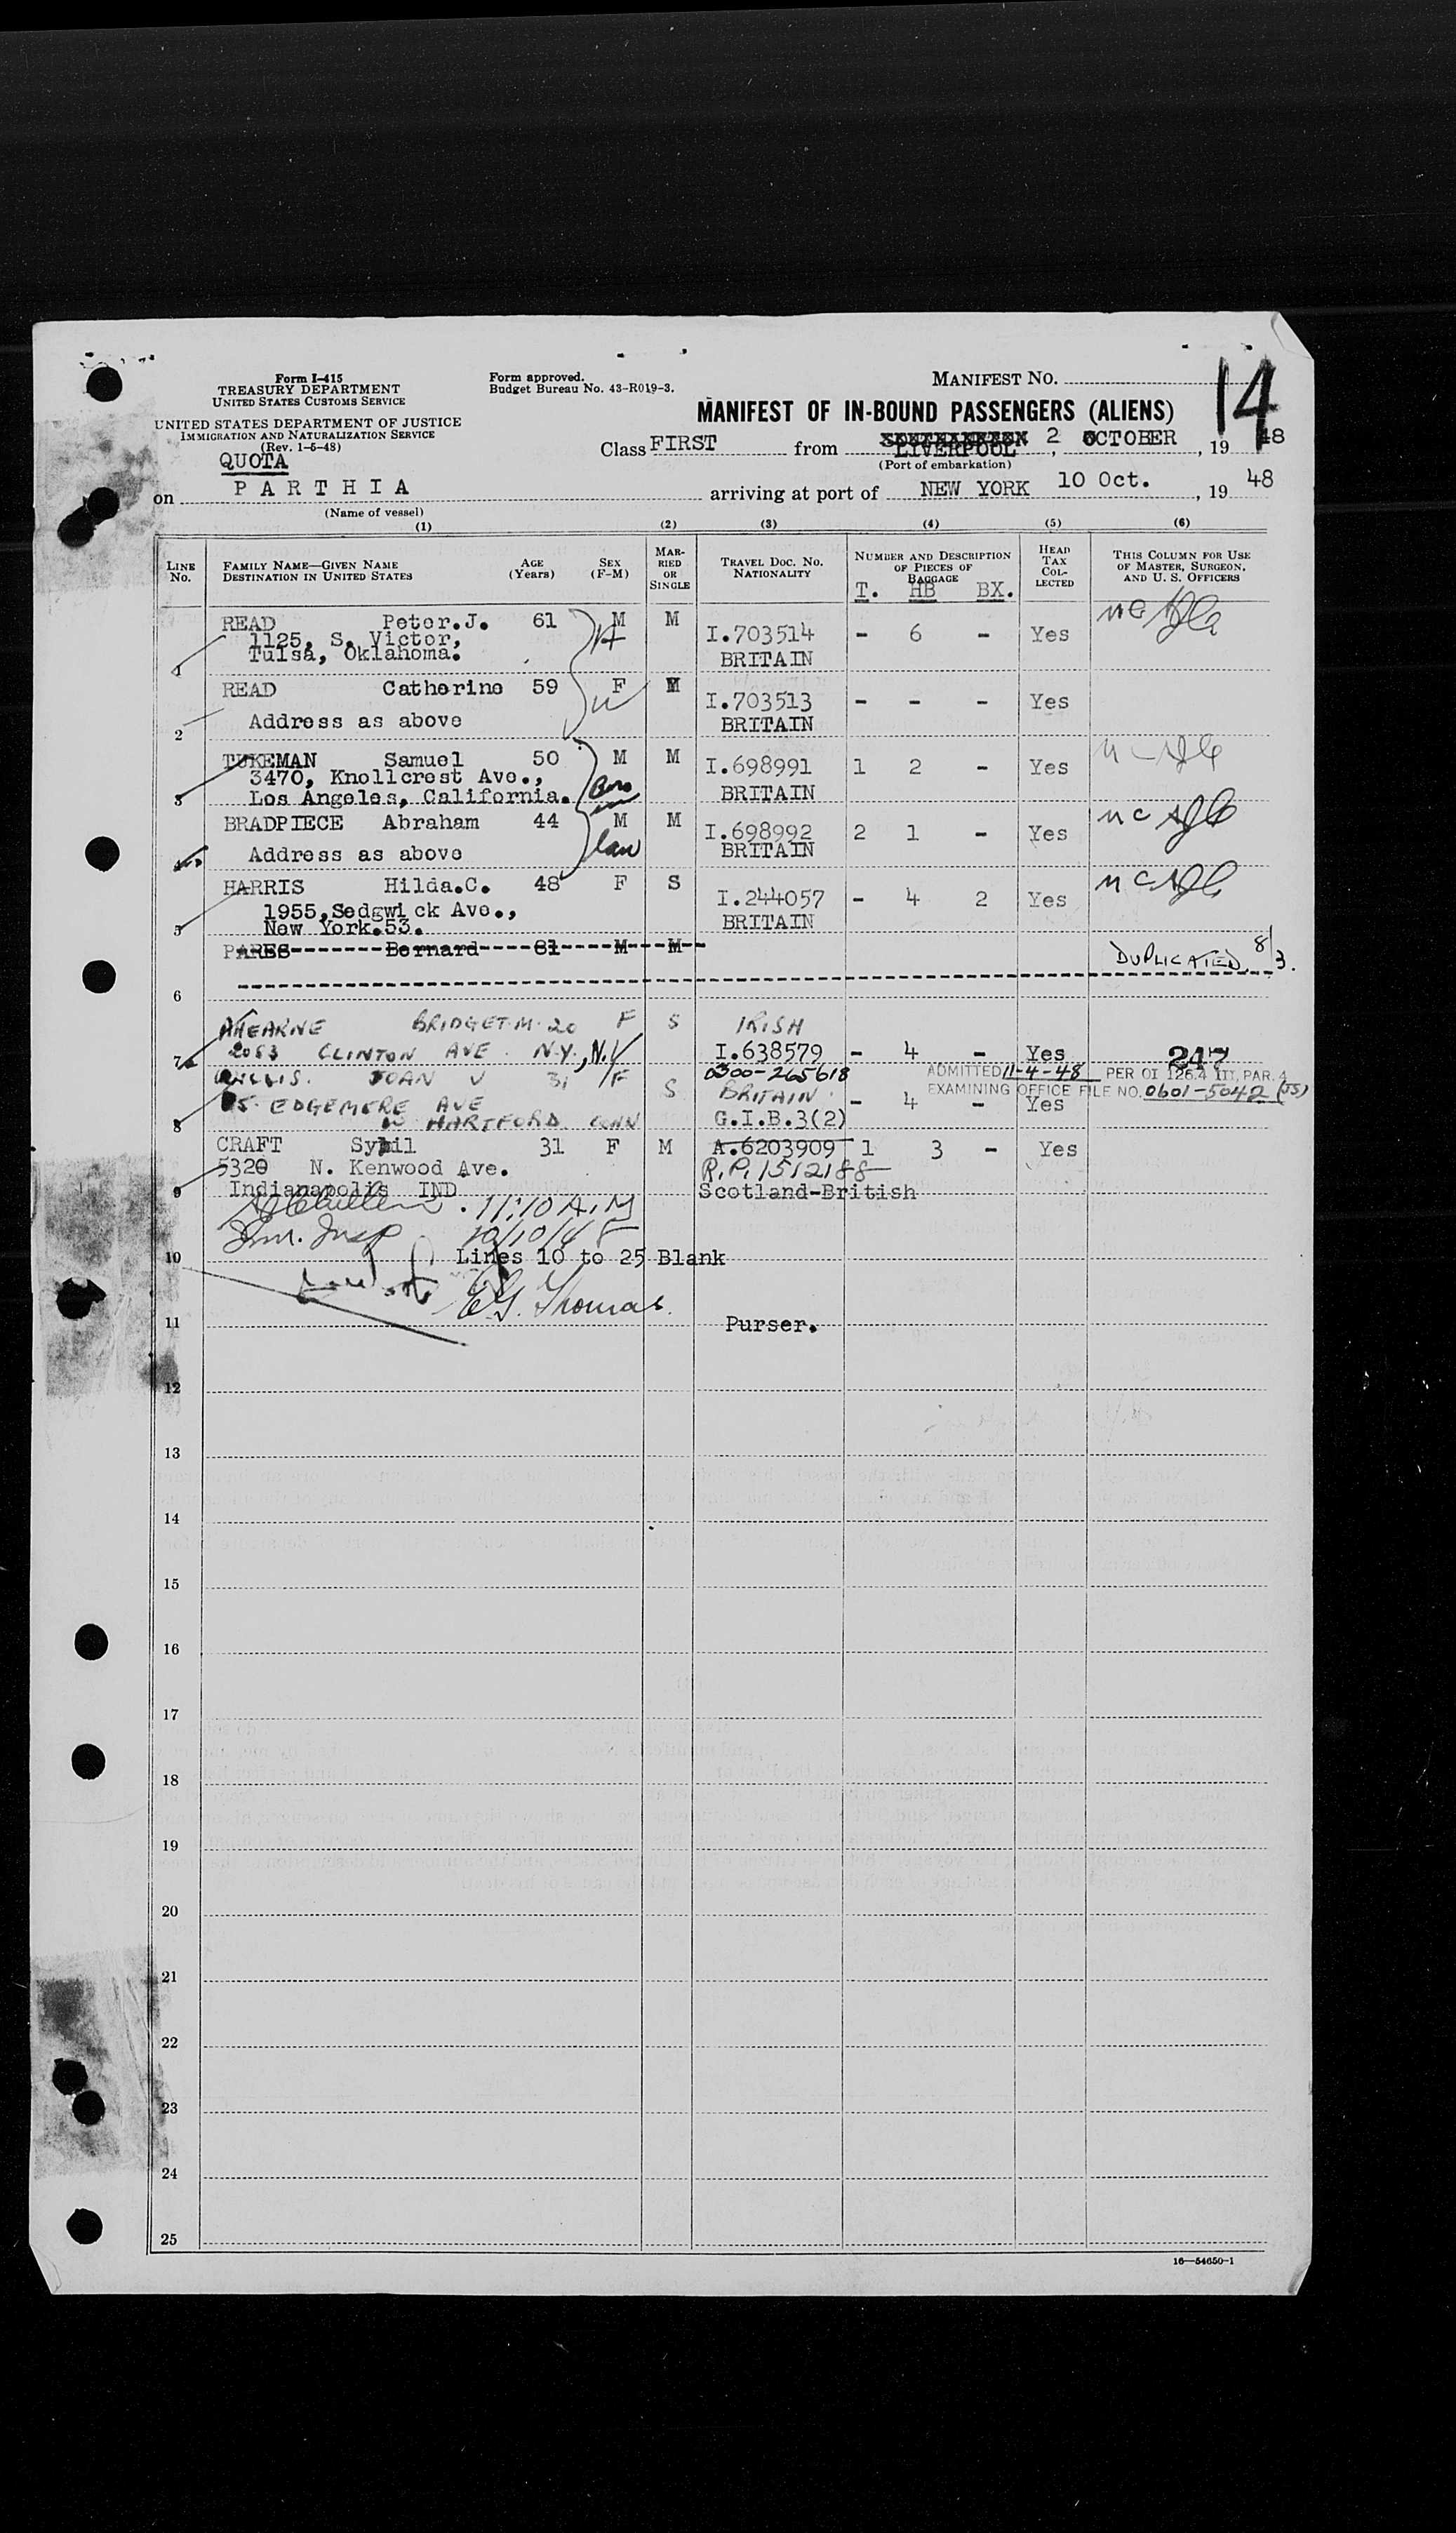 Form I-415
TREASURY DEPARTMENT
UNITED STATES CUSTOMS SERVICE
UNITED STATES DEPARTMENT OF JUSTICE
IMMIGRATION AND NATURALIZATION SERVICE
(Rev. 1-5-48)
Form approved.
Budget Bureau No. 43-R019-3.
MANIFEST NO.
14
MANIFEST OF IN-BOUND PASSENGERS (ALIENS)
QUOTA
Class FIRST from LIVERPOOL 2 OCTOBER, 1948
(Port of embarkation)
on PARTHIA arriving at port of NEW YORK 10 Oct., 1948
(Name of vessel)
(1) (2) (3) (4) (5) (6)
LINE No. FAMILY NAME—GIVEN NAME DESTINATION IN UNITED STATES AGE (Years) SEX (F-M) MARRIED OR SINGLE TRAVEL DOC. NO. NATIONALITY NUMBER AND DESCRIPTION OF PIECES OF BAGGAGE HEAD TAX COLLECTED THIS COLUMN FOR USE OF MASTER, SURGEON, AND U. S. OFFICERS
T. HB BX.
READ Peter.J. 61 M M I.703514 - 6 - Yes
1125, S. Victor,
1 Tulsa, Oklahoma. BRITAIN
READ Catherine 59 F M I.703513 - - - Yes
2 Address as above BRITAIN
TUKEMAN Samuel 50 M M I.698991 1 2 - Yes
3470, Knollcrest Ave.,
3 Los Angeles, California. BRITAIN
BRADPIECE Abraham 44 M M I.698992 2 1 - Yes
Address as above law BRITAIN
HARRIS Hilda.C. 48 F S I.244057 - 4 2 Yes
1955, Sedgwick Ave.,
5 New York.53. BRITAIN
PARES Bernard 81 M M
DUPLICATED 8/3.
6
AHEARNE BRIDGET.M. 20 F S IRISH
7 2053 CLINTON AVE. N.Y., N.Y I.638579 - 4 - Yes 247
0300-265618
ADMITTED 11-4-48 PER OI 126.4 III, PAR. 4
EXAMINING OFFICE FILE NO. 0601-5042 (JS)
JOAN V 31 F S BRITAIN - 4 - Yes
5 EDGEMERE AVE
8 W HARTFORD CONN G.I.B.3(2)
CRAFT Sybil 31 F M A.6203909 1 3 - Yes
5320 N. Kenwood Ave. R.P. 1512188
9 Indianapolis IND Scotland-British
11:10 A.M
Imm. Insp 10/10/48
10 Lines 10 to 25 Blank
E.G. Thomas.
11 Purser.
12
13
14
15
16
17
18
19
20
21
22
23
24
25
16—54650-1